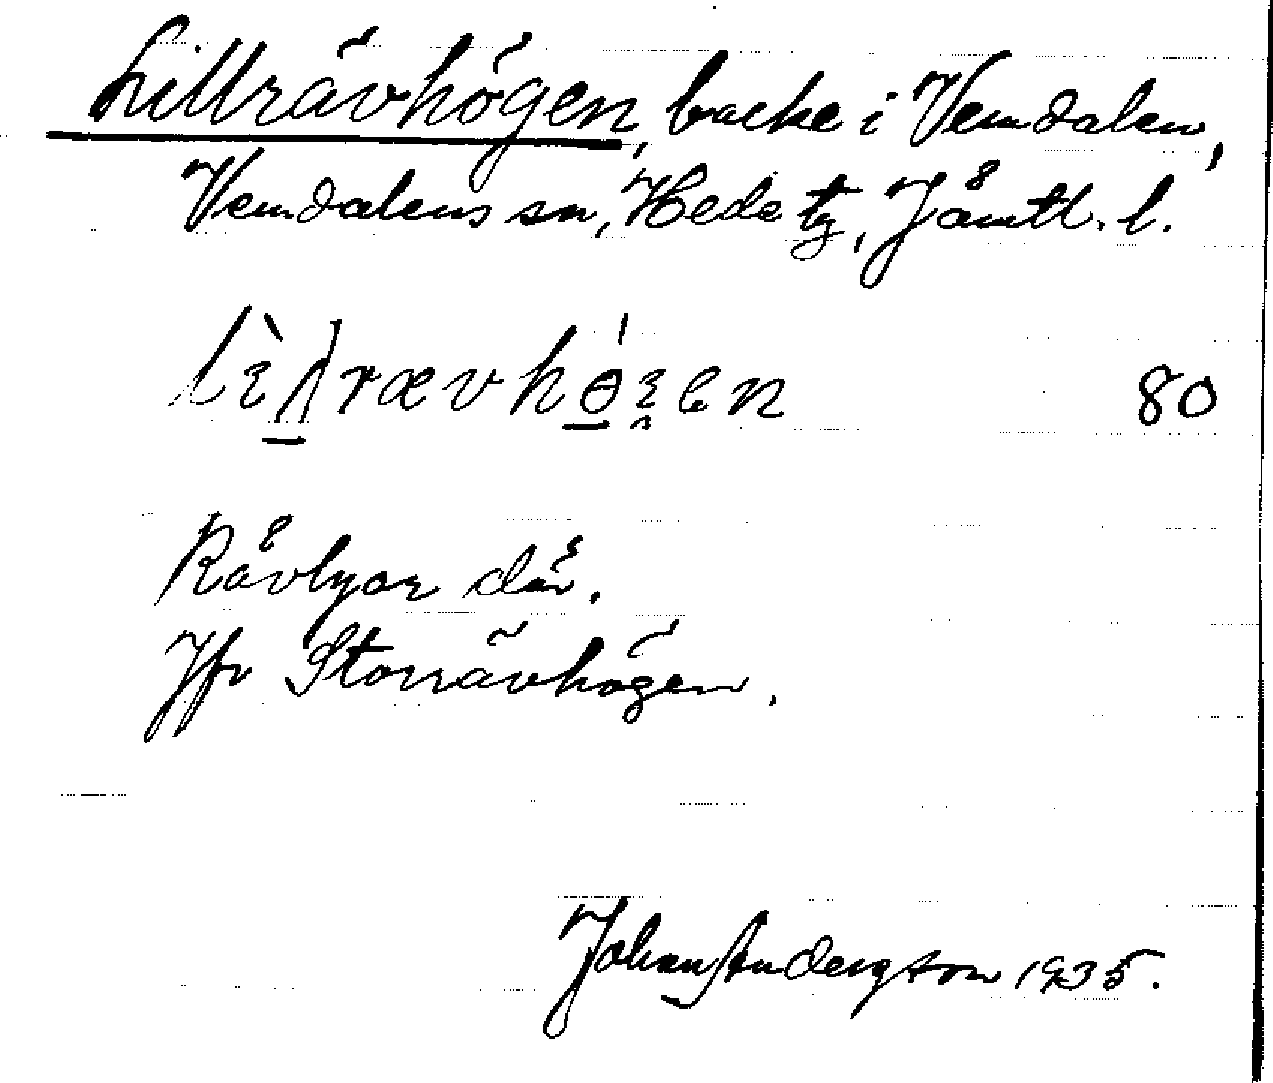 Lillrävhögen, backe i Vemdalen,
Vemdalens sn, Hede tg, Jämtl. l.
80
Rävlyor där.
Jfr Storrävhögen.
Johan Anderzon 1935.